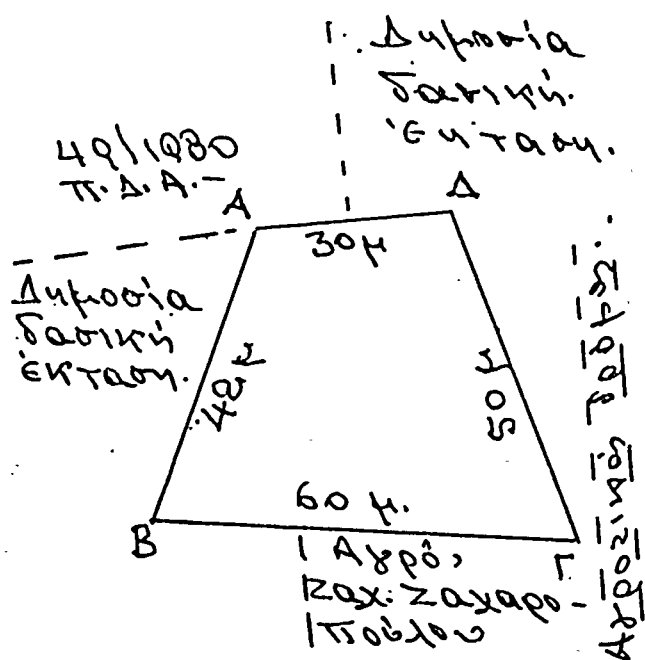 Δημοσία
δασική
έκταση.
49/1980
Π.Δ.Α.-
Α
Δ
30μ
Δημοσία
δασική
έκταση.
42μ
50μ
60 μ.
Β
Γ
Αγρό,
Ζαχ. Ζαχαρο-
πούλου
Αγροτικός